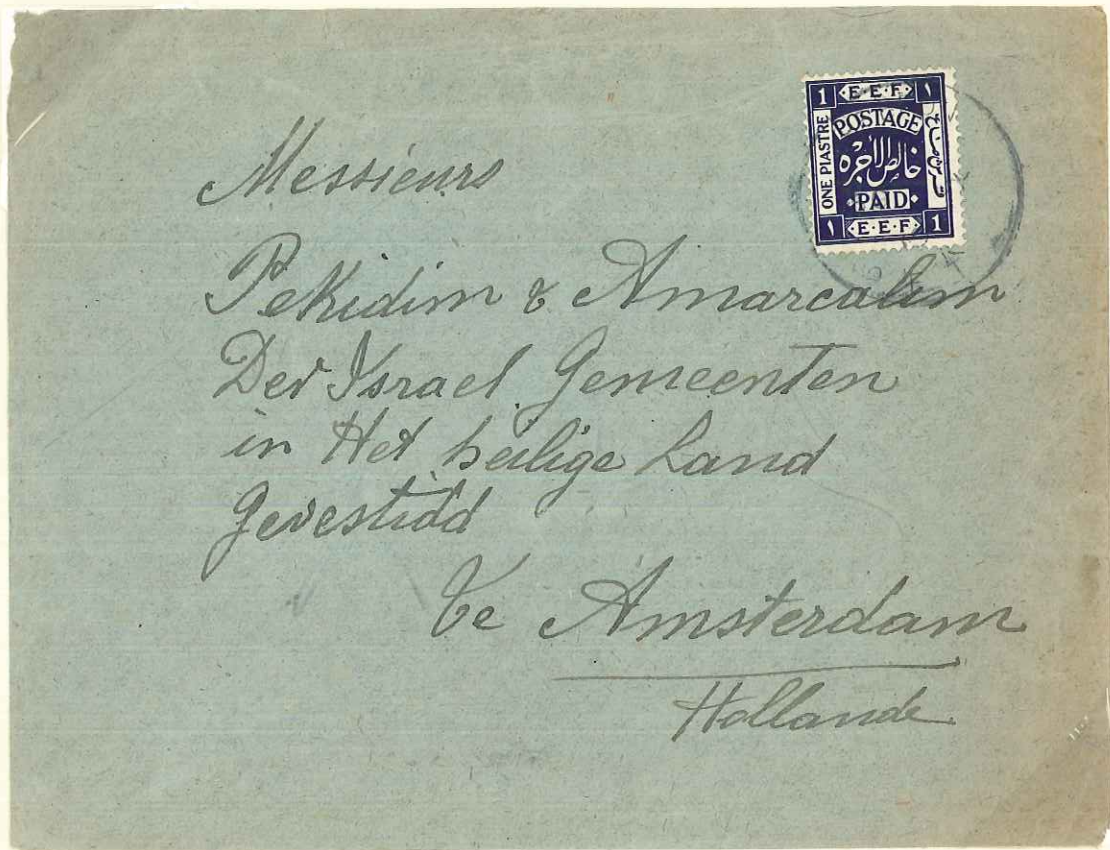 1 E·E·F ١
POSTAGE
ONE PIASTRE
خالص الاجره
PAID
١ E·E·F 1
Messieurs
Pekidim & Amarcalim
Der Israel Gemeenten
in Het heilige Land
Gevestidd
te Amsterdam
Hollande